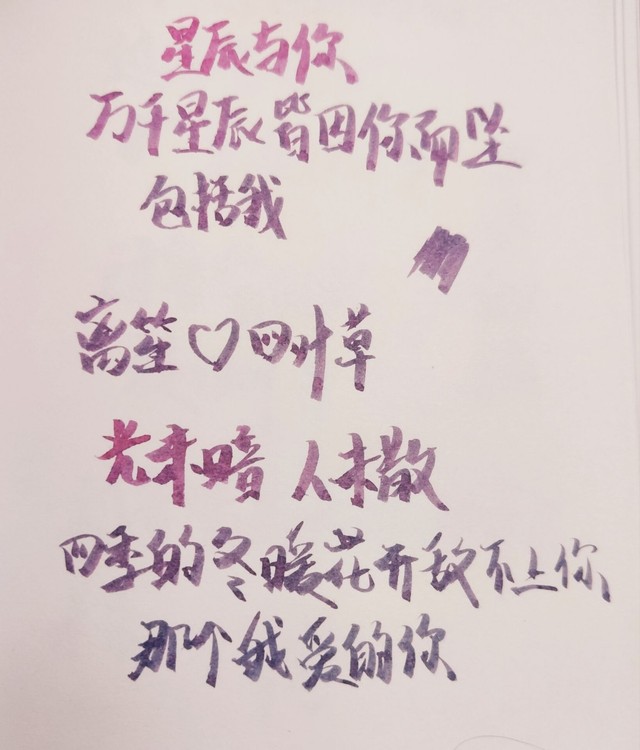 星辰与你
万千星辰皆因你而坠
包括我
离笙♡四叶草
光未暗 人未散
四季的冬暖花开敌不上你
那个我爱的你